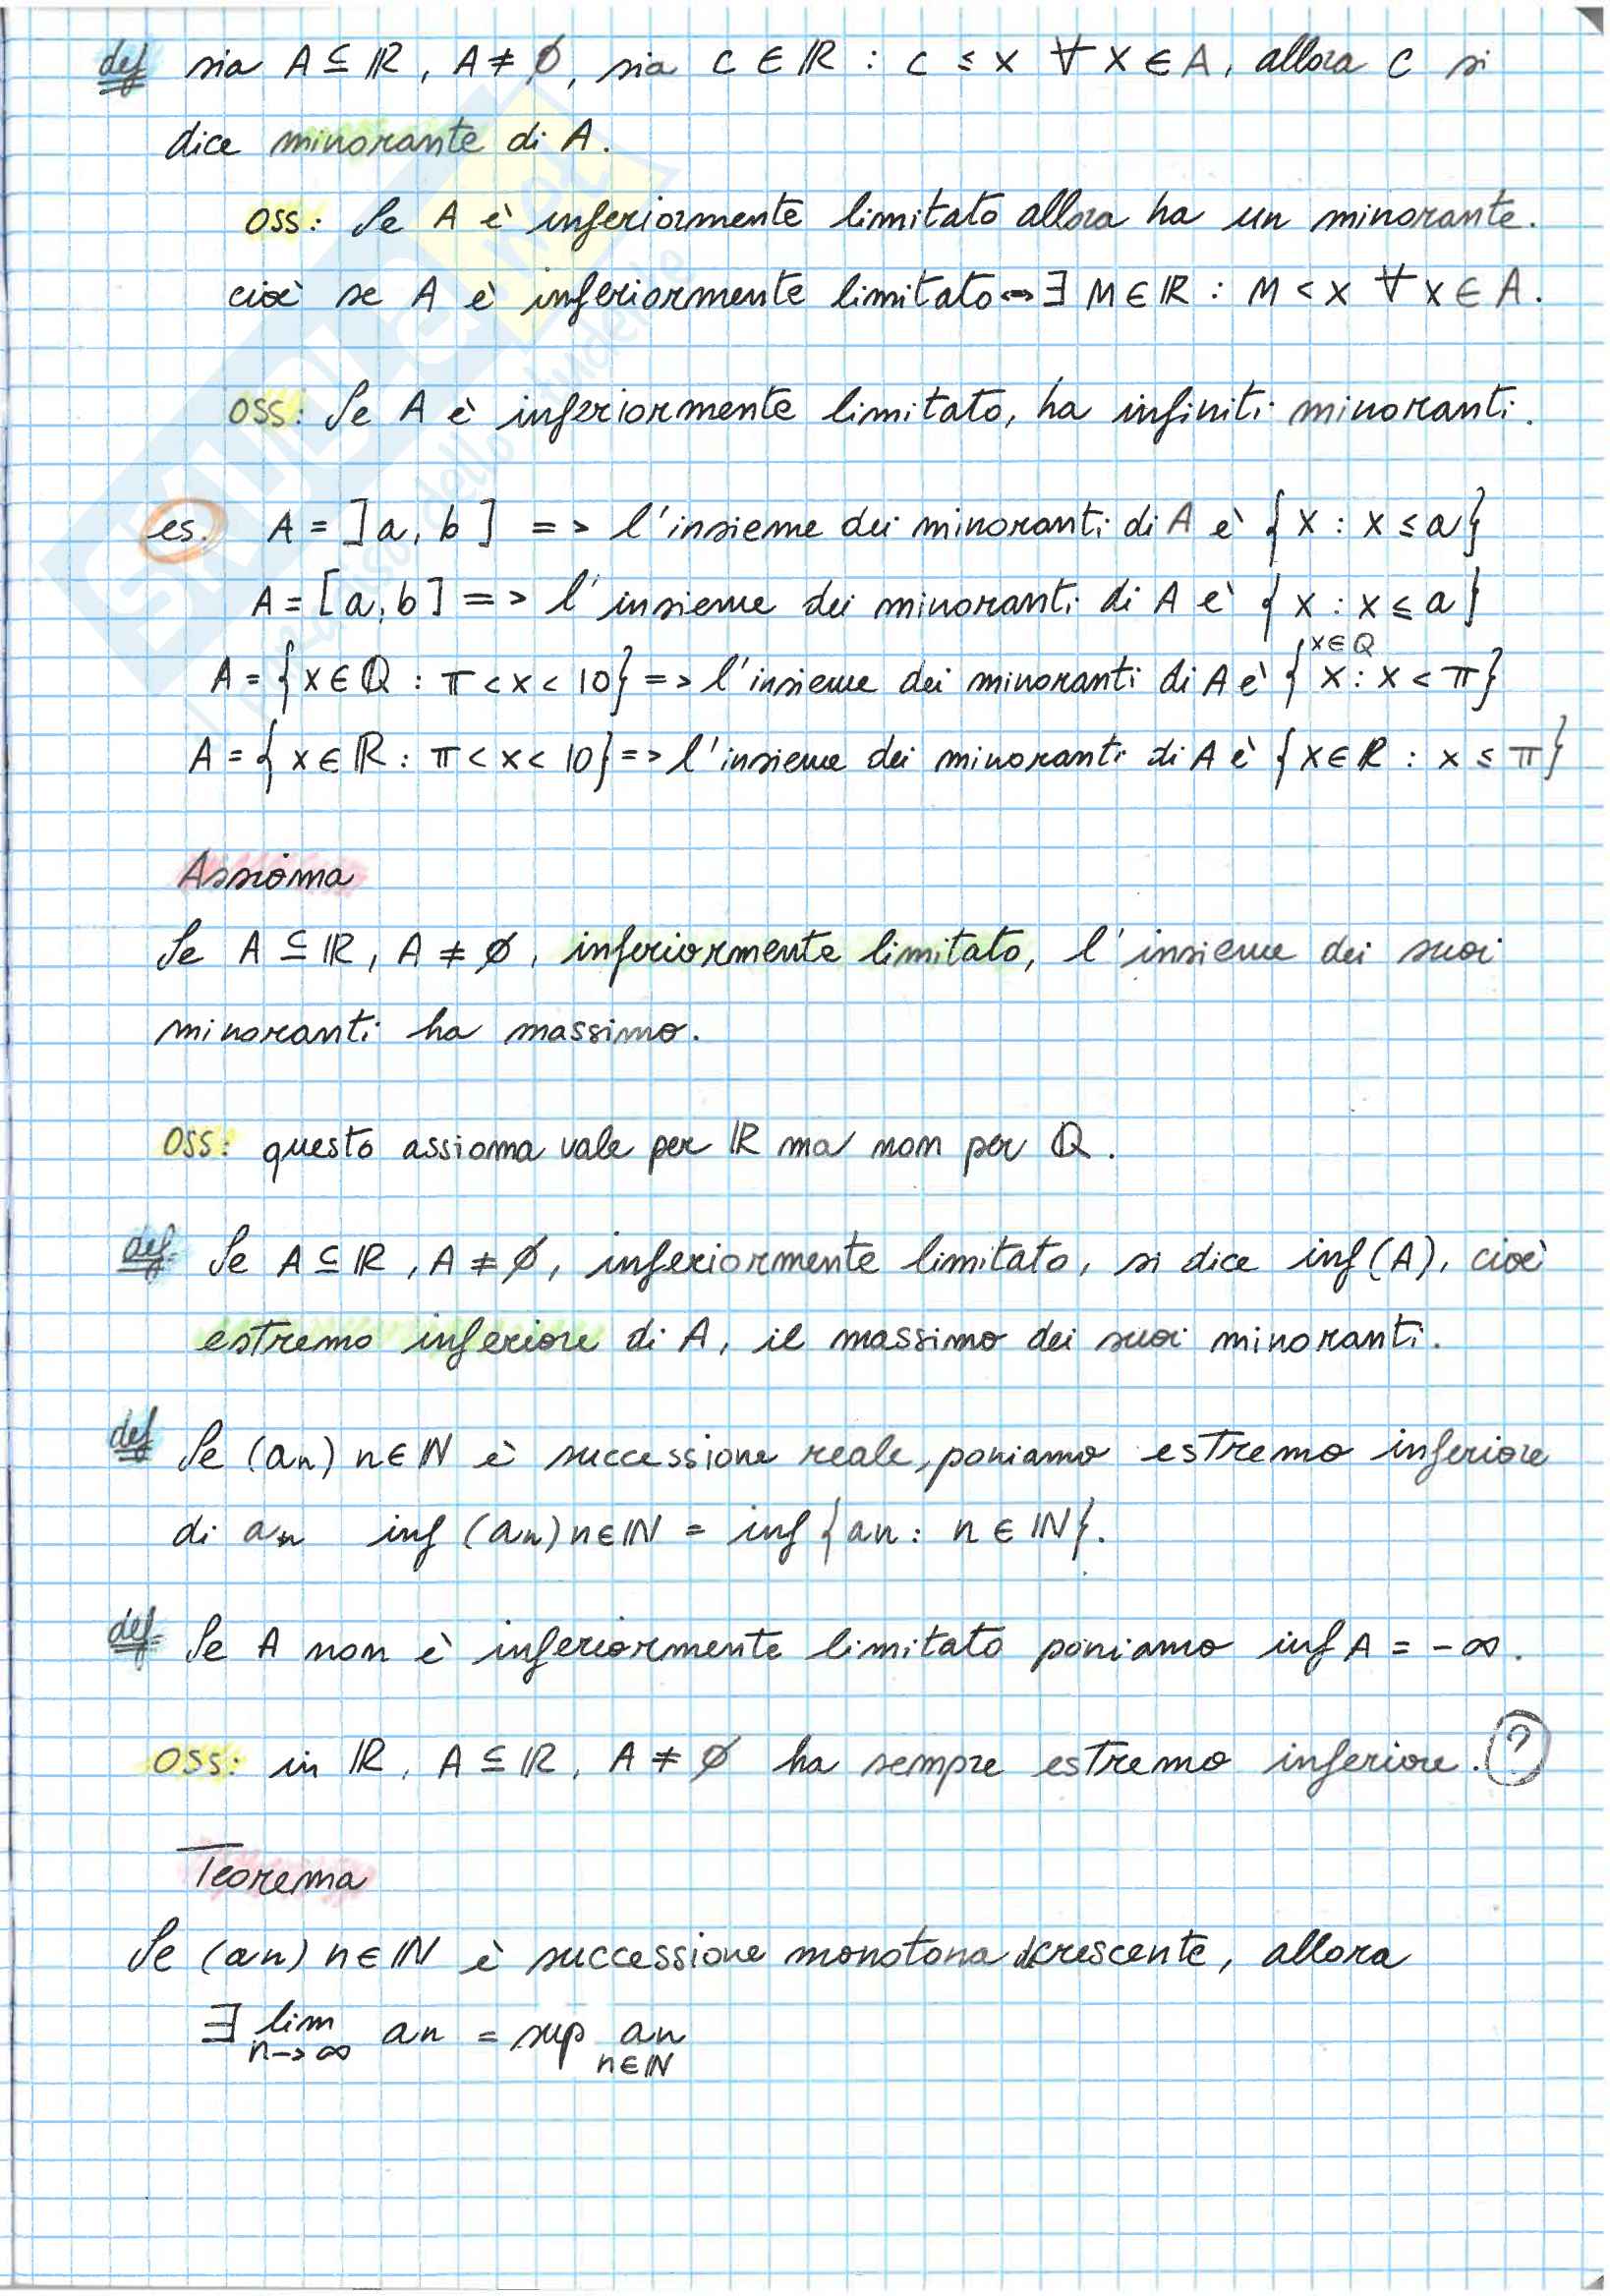 def sia A ⊆ ℝ, A ≠ ∅, sia c ∈ ℝ : c ≤ x ∀ x ∈ A, allora c si
dice minorante di A.
OSS: Se A è inferiormente limitato allora ha un minorante.
cioè se A è inferiormente limitato ⇔ ∃ M ∈ ℝ : M < x ∀ x ∈ A.
OSS: Se A è inferiormente limitato, ha infiniti minoranti.
es. A = ]a, b] => l'insieme dei minoranti di A è {x : x ≤ a}
A = [a, b] => l'insieme dei minoranti di A è {x : x ≤ a}
x ∈ ℚ
A = {x ∈ ℚ : π < x < 10} => l'insieme dei minoranti di A è {x : x < π}
A = {x ∈ ℝ : π < x < 10} => l'insieme dei minoranti di A è {x ∈ ℝ : x ≤ π}
Assioma
Se A ⊆ ℝ, A ≠ ∅, inferiormente limitato, l'insieme dei suoi
minoranti ha massimo.
OSS: questo assioma vale per ℝ ma non per ℚ.
def. Se A ⊆ ℝ, A ≠ ∅, inferiormente limitato, si dice inf(A), cioè
estremo inferiore di A, il massimo dei suoi minoranti.
def Se (an) n ∈ ℕ è successione reale, poniamo estremo inferiore
di an inf (an) n ∈ ℕ = inf {an : n ∈ ℕ}.
def. Se A non è inferiormente limitato poniamo inf A = -∞.
OSS: in ℝ, A ⊆ ℝ, A ≠ ∅ ha sempre estremo inferiore. ?
Teorema
Se (an) n ∈ ℕ è successione monotona decrescente, allora
∃ lim an = sup an
n→∞ n ∈ ℕ